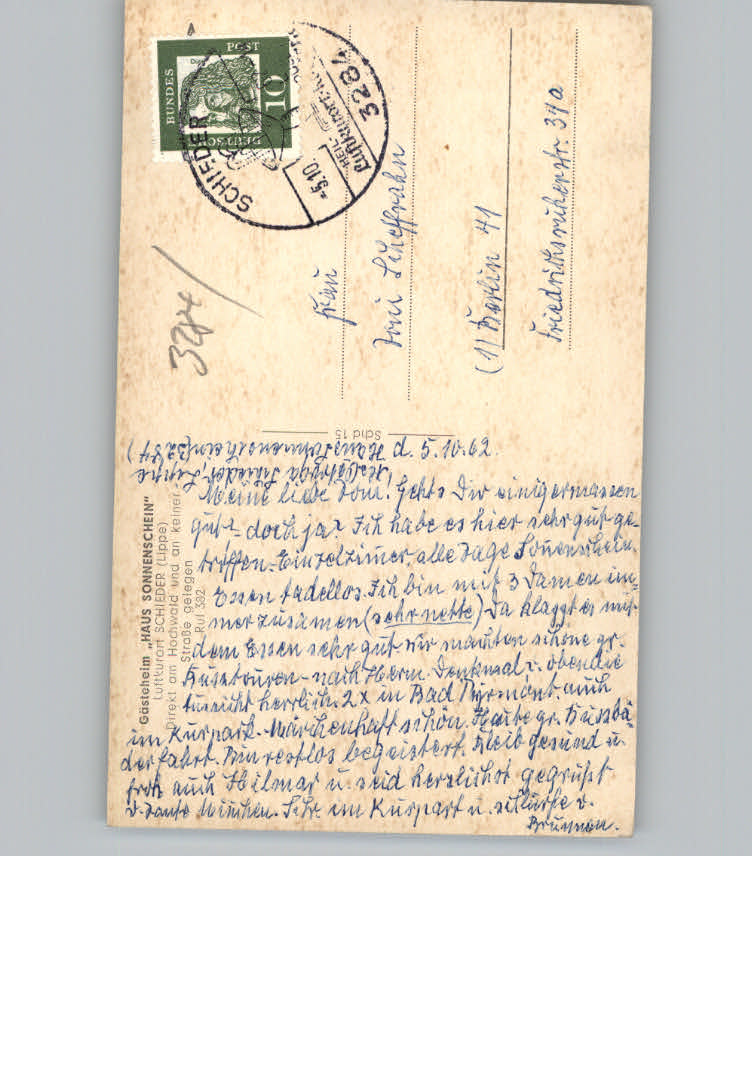 Gästeheim „HAUS SONNENSCHEIN"
Luftkurort SCHIEDER (Lippe)
Direkt am Hochwald und an keiner
Straße gelegen
Ruf 382
Schd 15
DEUTSCHE
BUNDES
POST
10
SCHIEDER
3284
HEIL-
Luftkurort
-5.10.
3284
Frau
Toni Scheffrahn
(1) Berlin 41
Friedrichsruherstr. 37a
Haus Sonnenschein (3284)
Schieder, Lippe
d. 5.10.62
Meine liebe Toni! Gehts Dir einigermassen
gut - doch ja? Ich habe es hier sehr gut ge-
troffen. Einzelzimer, alle Tage Sonenschein.
Essen tadellos. Ich bin mit 3 Damen im-
mer zusamen (sehr nette) Da klappt es mit
dem Essen sehr gut wir machten schöne gr.
Busstouren - nach Herm. Denkmal v. oben die
Aussicht herrlich. 2x in Bad Pyrmont. auch
im Kurpark. Märchenhaft schön. Heute gr. Bussbä-
derfahrt. Bin restlos begeistert. Bleib gesund u.
froh auch Hilmar u. seid herzlichst gegrüßt
v. Tante Minchen. im Kurpark u. v.
Brunnen.